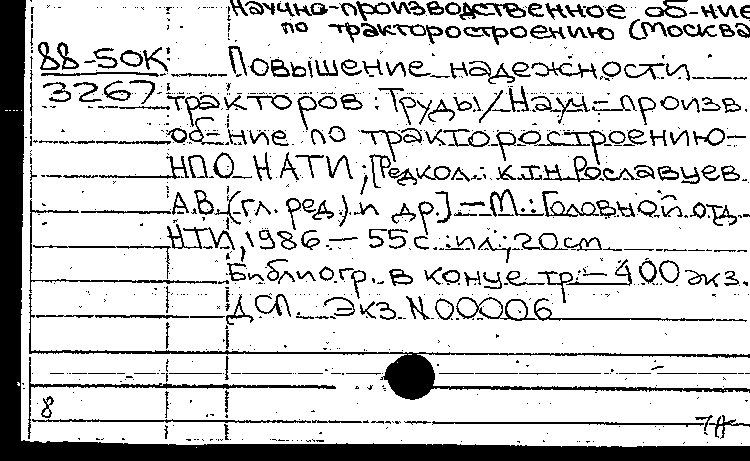 Научно-производственное об-ние
по тракторостроению (Москва
88-50К
3267
Повышение надежности
тракторов : Труды / Науч-произв.
об-ние по тракторостроению-
НПО НАТИ; [Редкол.: к.т.н. Рославцев
А.В. (гл. ред.) и др.] – М.: Головной отд.
НТИ, 1986. – 55 с. : ил.; 20 cm
Библиогр. в конце тр. – 400 экз.
ДСП. Экз. N 00006
8